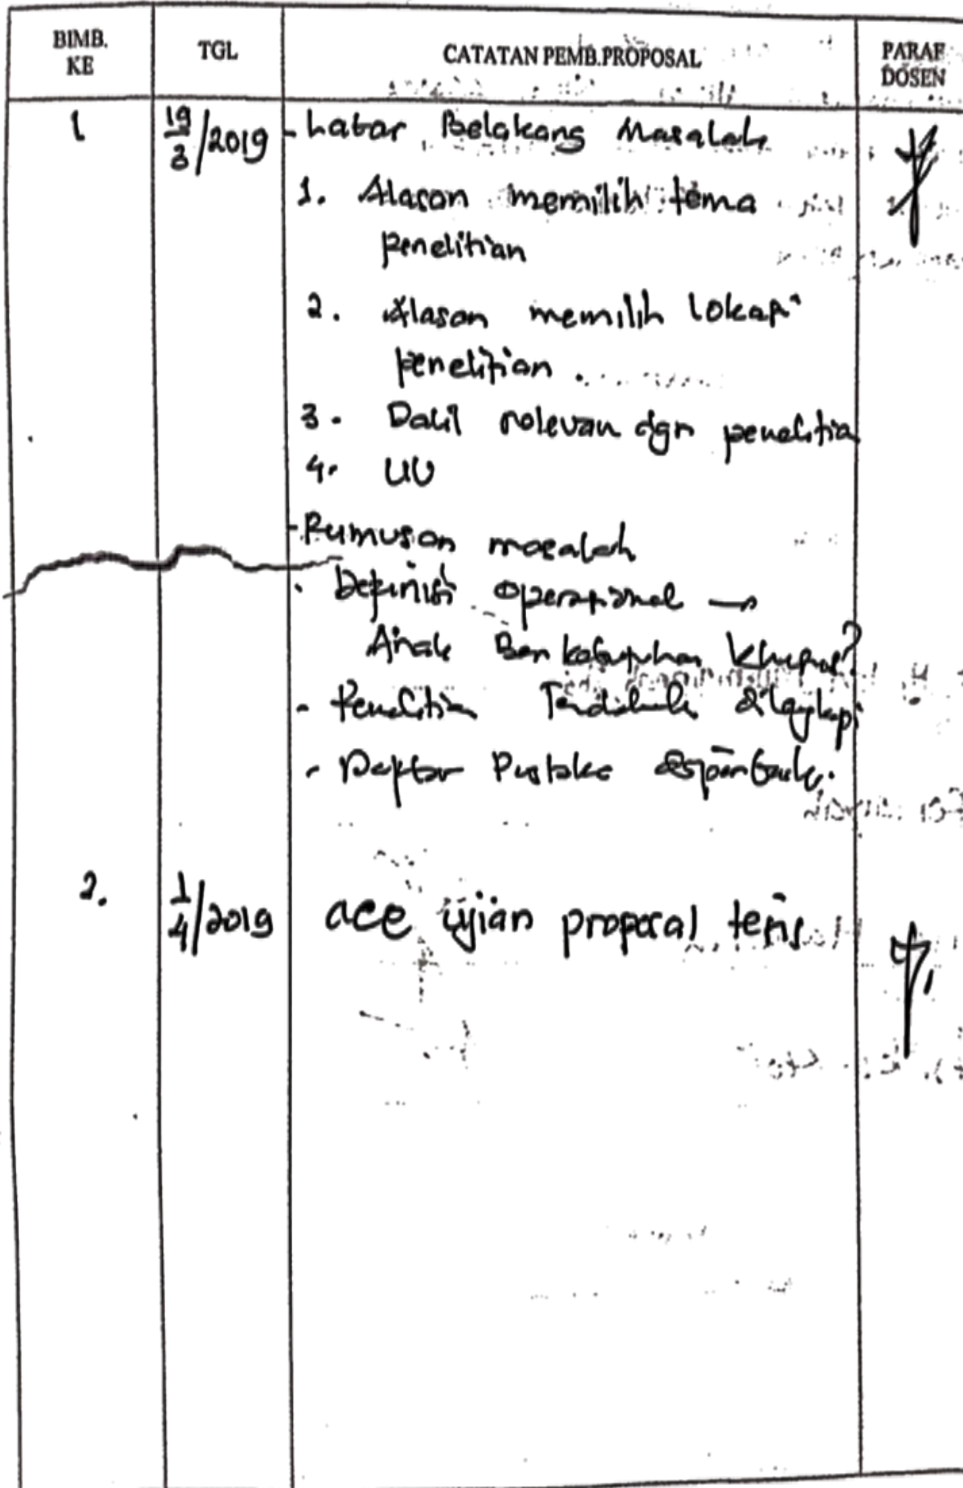 BIMB. KE
TGL
CATATAN PEMB.PROPOSAL
PARAF DOSEN
1
19/3/2019
- Latar Belakang Masalah
1. Alasan memilih tema
penelitian
2. Alasan memilih lokasi
penelitian.
3. Dalil relevan dgn penelitia
4. UU
- Rumusan masalah
- Definisi Operasional →
Anak Berkebutuhan Khusus?
- Penelitian Terdahulu dilengkapi
- Daftar Pustaka
2.
1/4/2019
acc ujian proposal tesis